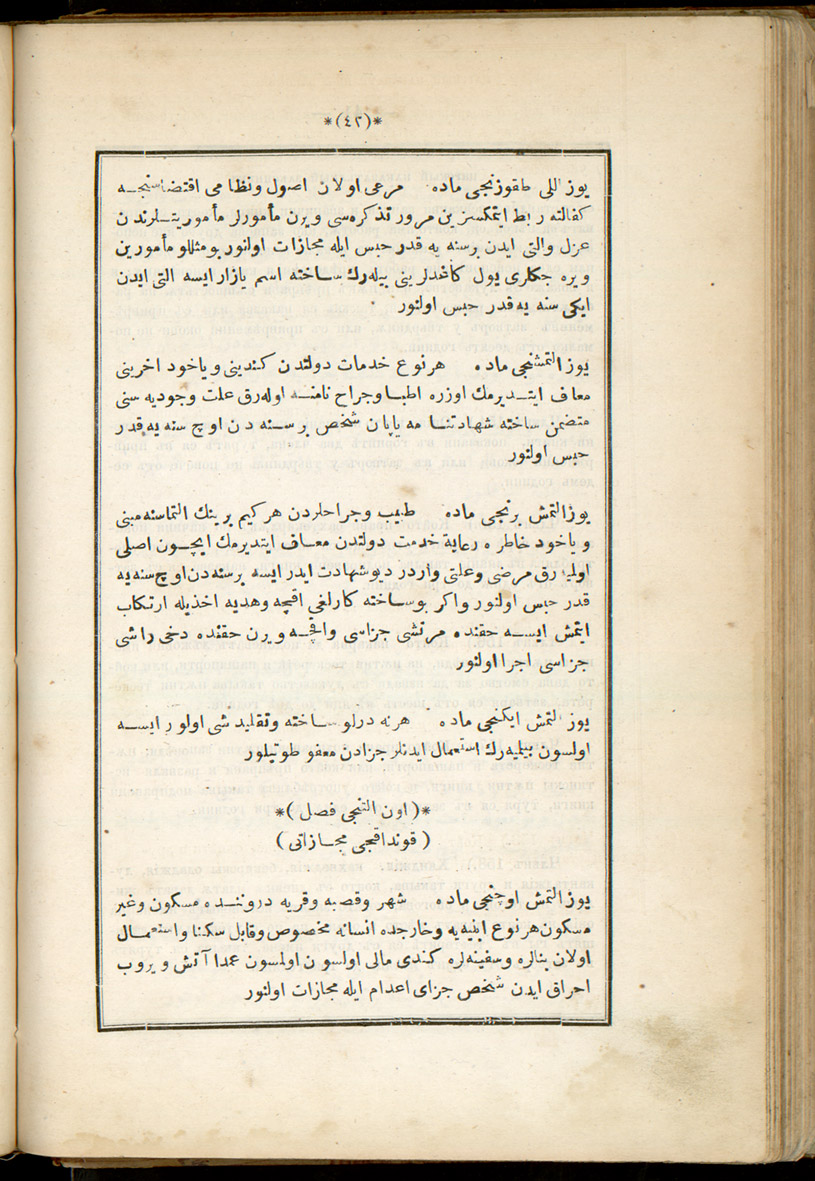 *(٤٢)*
يوز اللى طقوزنجى ماده مرعى اولان اصول ونظامى اقتضاسنجه
كفالته ربط ايتمكسزين مرور تذكره سى ويرن مأمورلر مأموريتلرندن
عزل والتى ايدن برسنه يه قدر حبس ايله مجازات اولنور بومثللو مأمورين
ويره جكلرى يول كاغدلرينى بيله رك ساخته اسم يازار ايسه التى ايدن
ايكى سنه يه قدر حبس اولنور
يوز التمشنجى ماده هرنوع خدمات دولتدن كندينى وياخود اخرينى
معاف ايتديرمك اوزره اطبا وجراح نامنه اوله رق علت وجوديه سنى
متضمن ساخته شهادتنامه ياپان شخص برسنه دن اوچ سنه يه قدر
حبس اولنور
يوز التمش برنجى ماده طبيب وجراحلردن هركيم برينك التماسنه مبنى
وياخود خاطره رعاية خدمت دولتدن معاف ايتديرمك ايچون اصلى
اولميه رق مرضى وعلتى واردر ديو شهادت ايدر ايسه برسنه دن اوچ سنه يه
قدر حبس اولنور واكر بو ساخته كارلغى اقچه وهديه اخذيله ارتكاب
ايتمش ايسه حقنده مرتشى جزاسى واقچه ويرن حقنده دخى راشى
جزاسى اجرا اولنور
يوز التمش ايكنجى ماده هرنه درلو ساخته وتقليد شى اولور ايسه
اولسون بيلميه رك استعمال ايدنلر جزادن معفو طوتيلور
*(اون التنجى فصل)*
(قونداقجى مجازاتى)
يوز التمش اوچنجى ماده شهر وقصبه وقريه دروننده مسكون وغير
مسكون هرنوع ابنيه يه وخارجده انسانه مخصوص وقابل سكنا واستعمال
اولان بنالره وسفينه لره كندى مالى اولسون اولمسون عمدا آتش ويروب
احراق ايدن شخص جزاى اعدام ايله مجازات اولنور